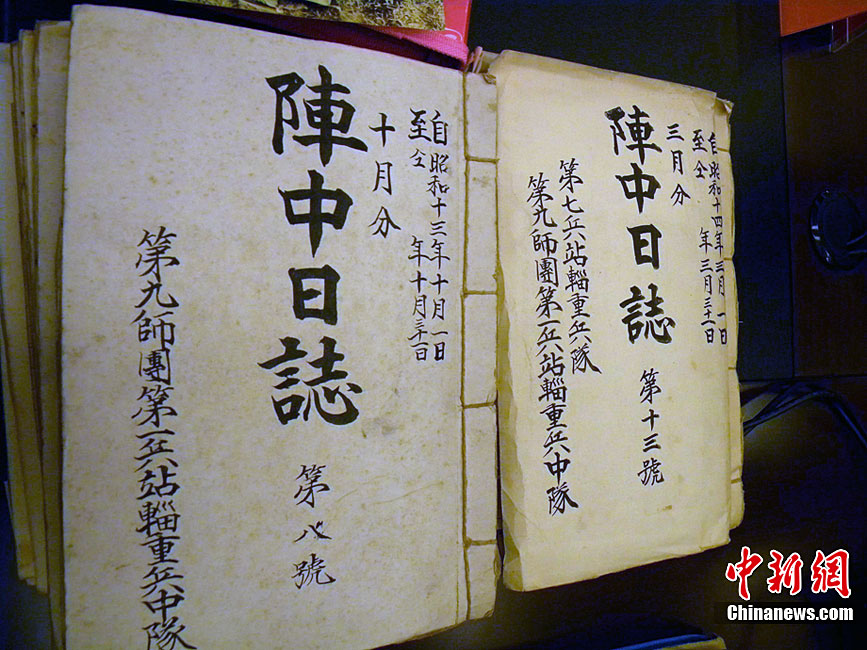 自昭和十三年十月一日
至仝年十月三十一日
十月分
陣中日誌
第八號
第九師團第一兵站輜重兵中隊
自昭和十四年三月一日
至仝年三月三十一日
三月分
陣中日誌
第十三號
第七兵站輜重兵隊
第九師團第一兵站輜重兵中隊
中新網
Chinanews.com